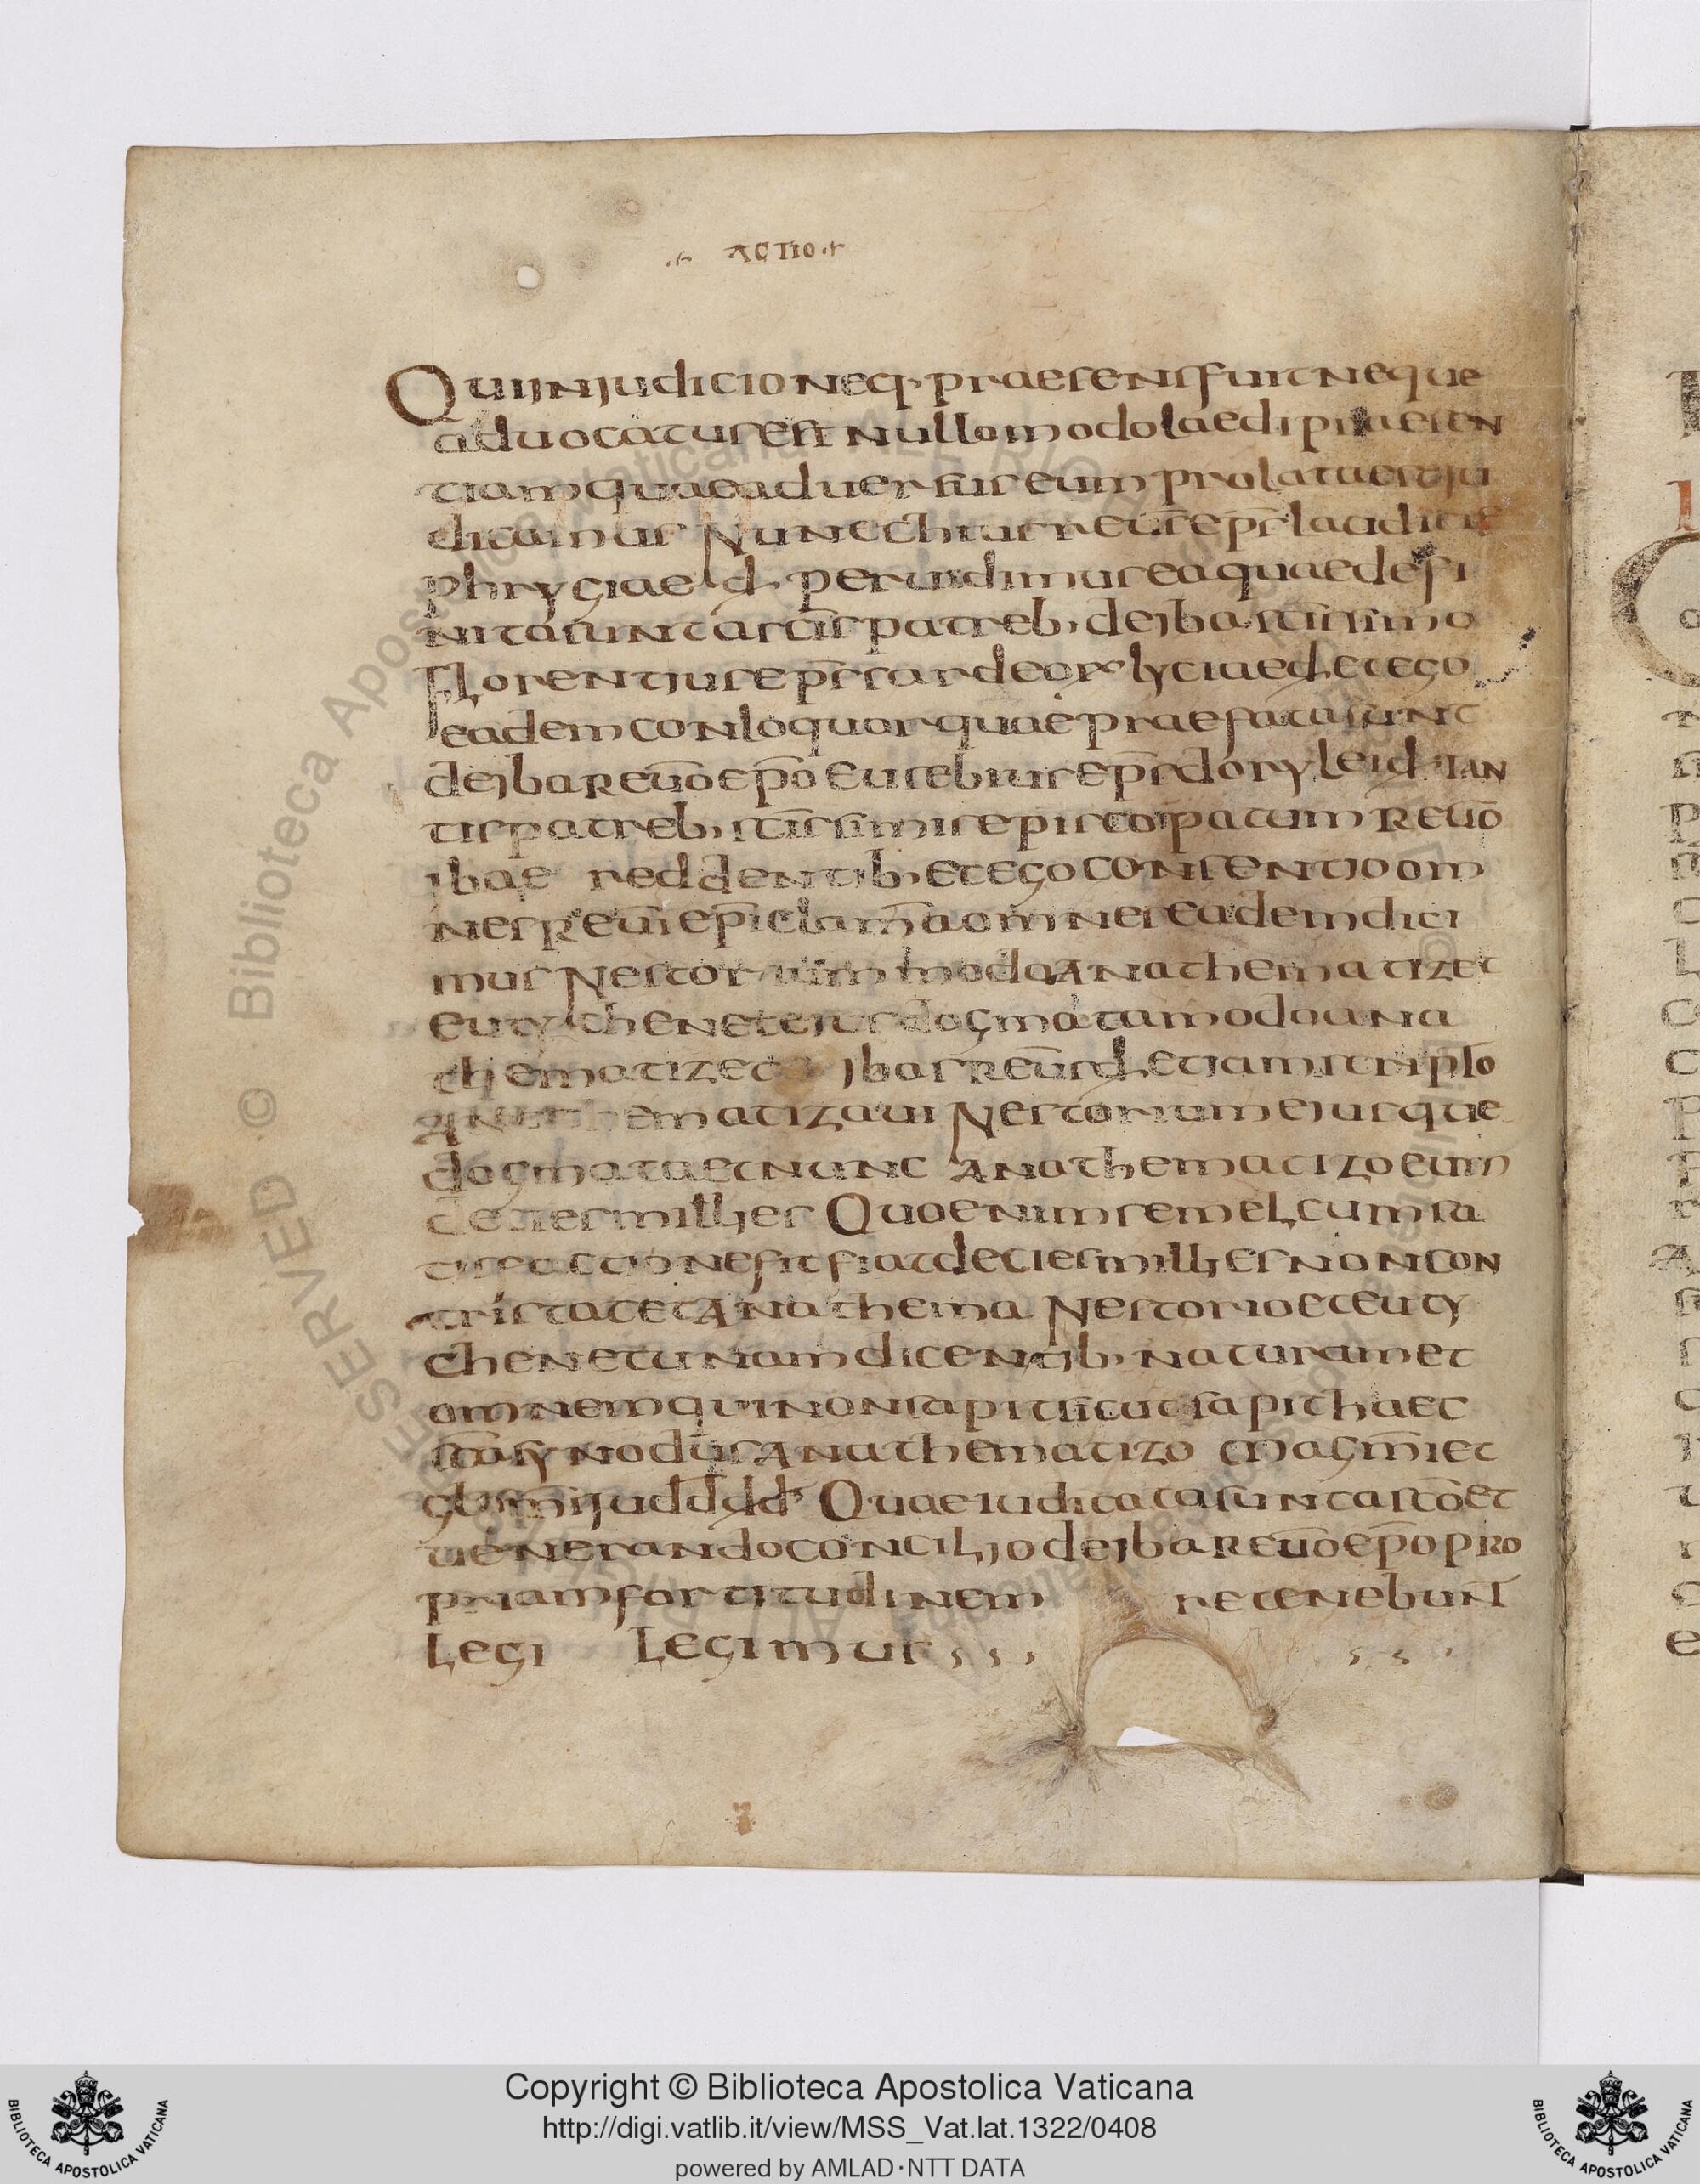 ACTIO
Qui in iudicio neq· praesens fuit neque
aduocatus est nullo modo laedi p sen
tiam quae aduersus eum prolata est iu
dicamus Nunechius reu̅s ep̅s laudiciae
phrygiae d· peruidimus ea quae defi
nita sunt a sc̅is patreb· de iba sc̅issimo
florentius ep̅s sardeon lyciae d· et ego
eadem conloquor quae praefata sunt
de iba reu̅o ep̅o Eusebius ep̅s dorylei d· san
tis patreb· sc̅issimis episcopatum reu̅o
ibae reddentib· et ego consentio om
nes reu̅i ep̅i clam̅ a omnes eadem dici
mus Nestorium modo Anathematizet
eutychen et eius dogmata modo ana
thematizet ibas reu̅s d· etiam scriplo
Anathematizaui Nestorium eiusque
dogmata et nunc Anathematizo eum
decies millies Quo enim semel cum sa
tisfactione fit fiat decies millies non con
tristat et Anathema Nestorio et euty
chen et unam dicentib· naturam et
omnem qui non sapit sicut sapit haec
sc̅a synodus Anathematizo magm̅i et
glosm̅i iud̅d̅ d̅d̅ Quae iudicata sunt a sc̅o et
uenerando concilio de iba reu̅o ep̅o pro
priam fortitudinem retenebunt
Legi Legimus
© Biblioteca Apostolica Vaticana
Copyright © Biblioteca Apostolica Vaticana
http://digi.vatlib.it/view/MSS_Vat.lat.1322/0408
powered by AMLAD·NTT DATA
BIBLIOTECA APOSTOLICA VATICANA
BIBLIOTECA APOSTOLICA VATICANA